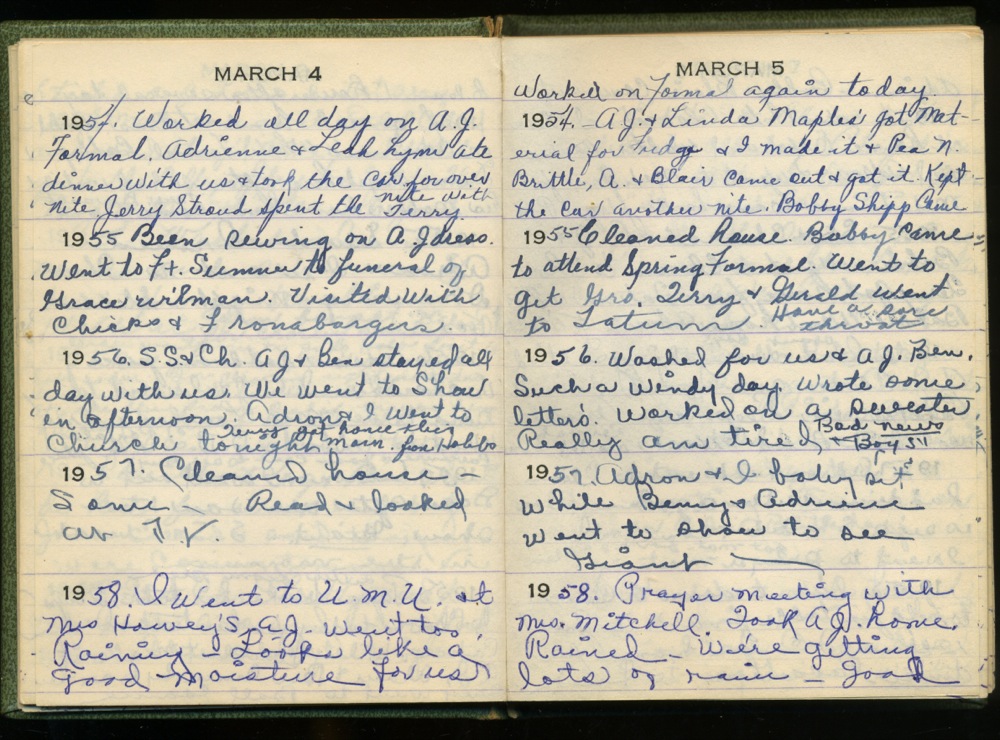 MARCH 4
1954. Worked all day on A.J.
Formal. Adrienne & Leah Lynn ate
dinner with us & took the car for over
nite Jerry Stroud spent the nite with
Terry.
1955 Been sewing on A.J. dress.
Went to Ft. Sumner to funeral of
Grace Wilman. Visited with
Chicks & Fronabargers.
1956. S.S. & Ch. AJ & Ben stayed all
day with us. We went to Show
in afternoon. Adron & I went to
Church tonight
Terry got home this
morn. from Hobbs
1957. Cleaned house -
Some - Read & looked
at T V.
1958. I went to U.M.U. at
Mrs Harvey's. A.J. went too.
Raining - Looks like a
good moisture for us
MARCH 5
Worked on Formal again today
1954. - AJ. & Linda Maples got Mat-
erial for Fudge & I made it & Pea N.
Brittle, A. & Blair came out & got it. Kept
the car another nite. Bobby Shipp Came
1955 Cleaned house. Bobby came
to attend Spring Formal. Went to
get Gro. Terry & Gerald went
to Tatum. Have a sore
throat
1956. Washed for us & A.J. Ben.
Such a windy day. Wrote some
letters. Worked on a sweater.
Really am tired,
Bad news
& Boy's!!
1957. Adron & I baby sit
while Benny & Adrienne
went to show to see
Giant
1958. Prayer meeting with
Mrs. Mitchell. Took A.J. home.
Rained - We're getting
lots of rain - Good